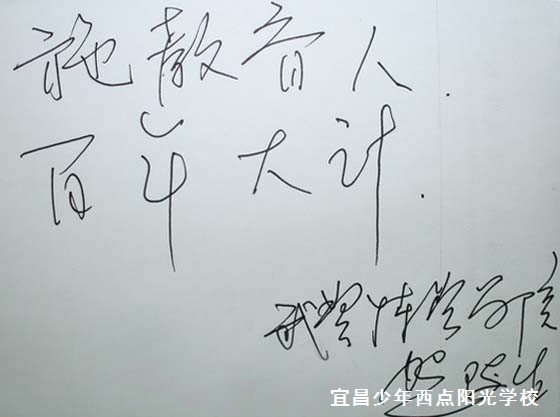 施教育人.
百年大计.
武汉体育学院
宜昌少年西点阳光学校